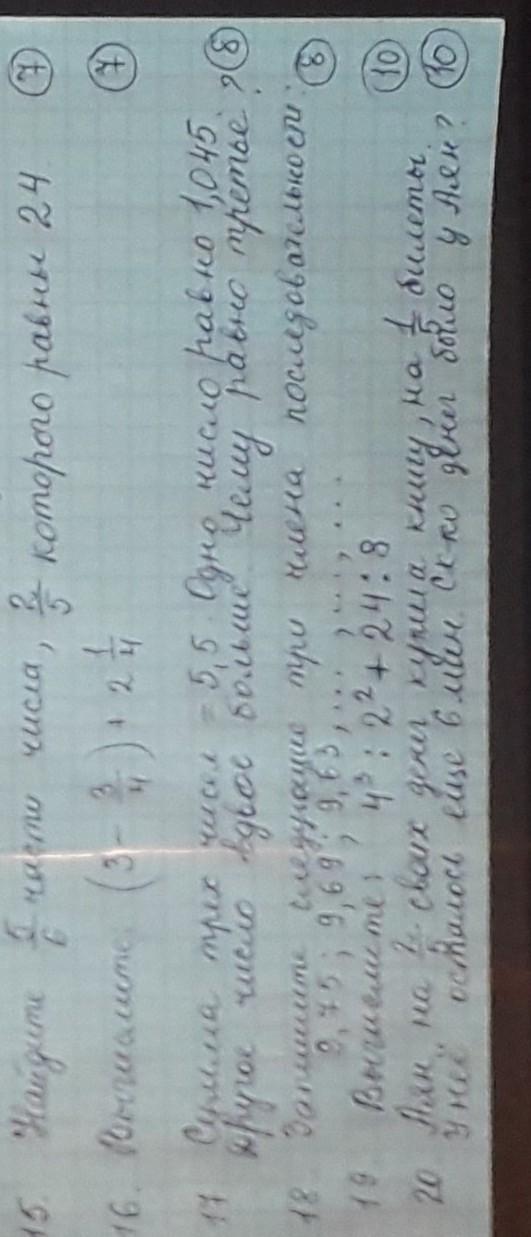 15. Найдите 5/6 части числа, 2/5 которого равны 24 (7)
16. Вычислите: (3 - 3/4) + 2 1/4 (7)
17 Сумма трех чисел = 5,5. Одно число равно 1,045
другое число вдвое больше. Чему равно третье? (8)
18. Запишите следующие три члена последовательности: (8)
9,75; 9,69; 9,63, ..., ..., ...
19 Вычислите: 4³ : 2² + 24 : 8 (10)
20 Аян на 2/5 своих денег купила книгу, на 1/5 билеты.
У неё осталось еще 6 ман Ск-ко денег было у Аян? (10)